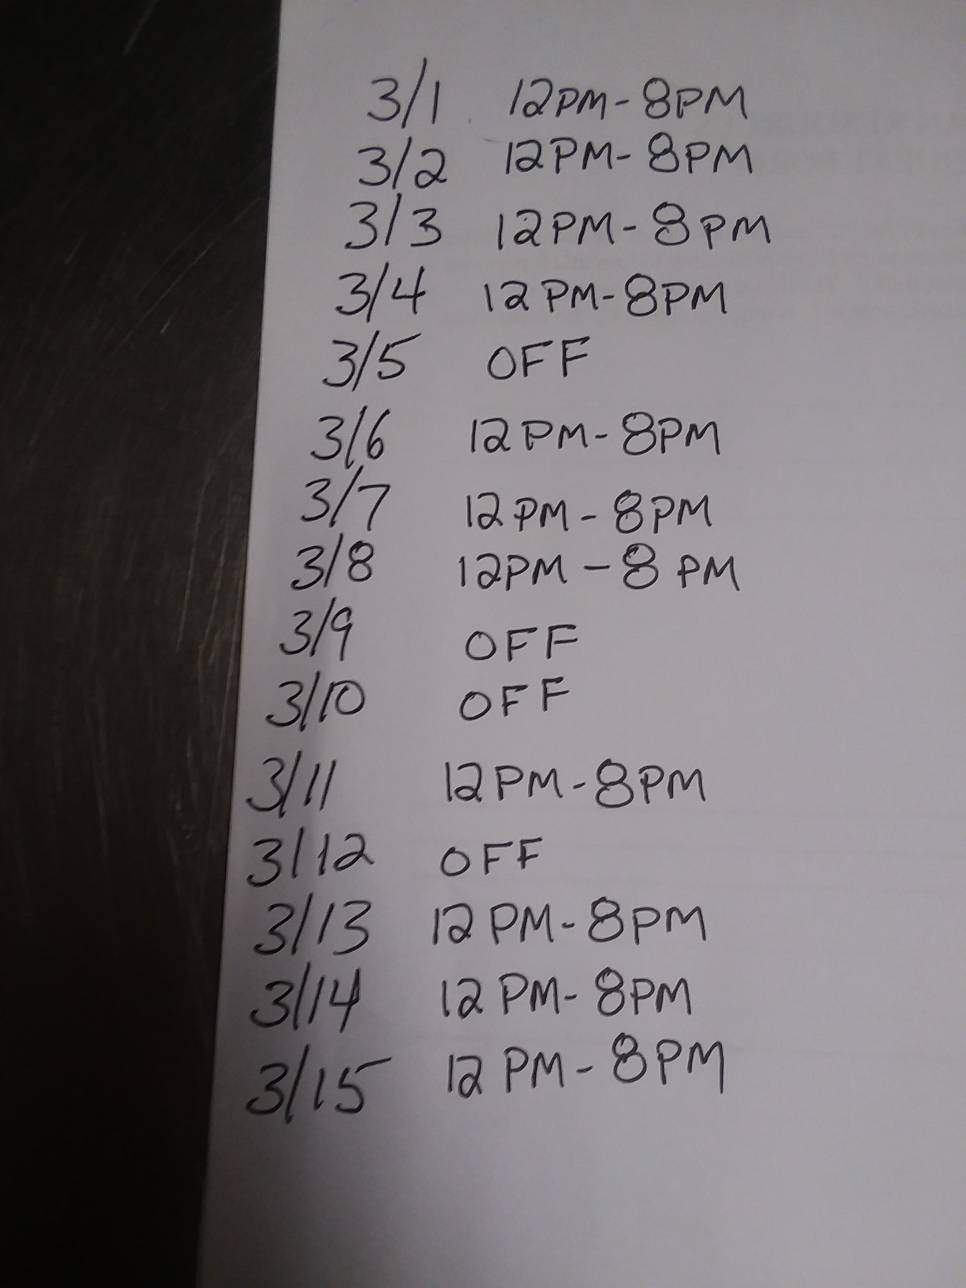 3/1 12PM-8PM
3/2 12PM-8PM
3/3 12PM-8PM
3/4 12PM-8PM
3/5 OFF
3/6 12PM-8PM
3/7 12PM-8PM
3/8 12PM-8PM
3/9 OFF
3/10 OFF
3/11 12PM-8PM
3/12 OFF
3/13 12PM-8PM
3/14 12PM-8PM
3/15 12PM-8PM